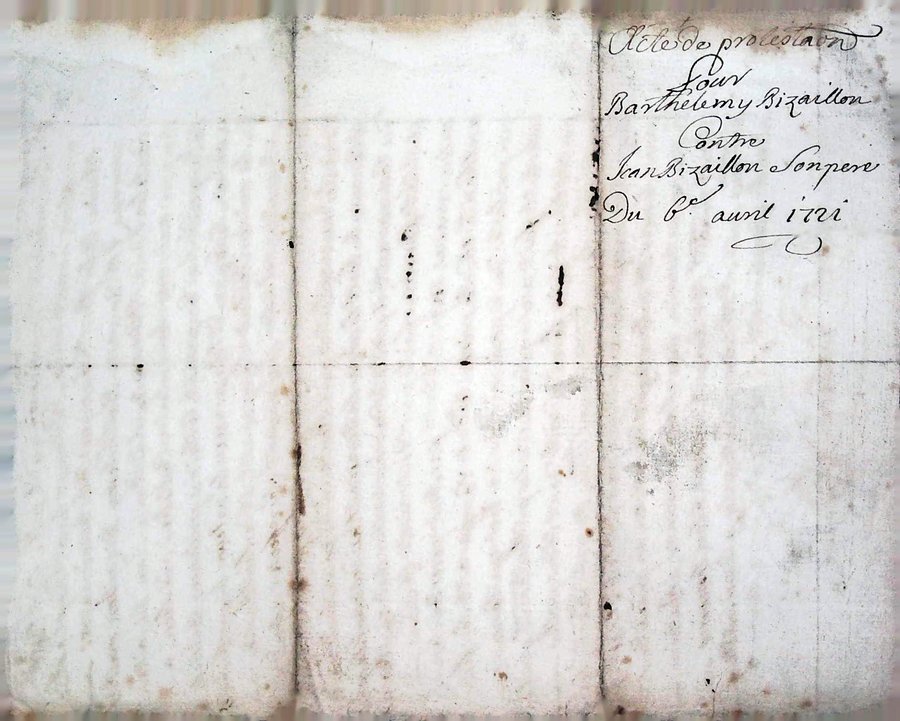 Acte de protestaon
Pour
Barthelemy Bizaillon
Contre
Jean Bizaillon Son pere
Du 6e. auril 1721